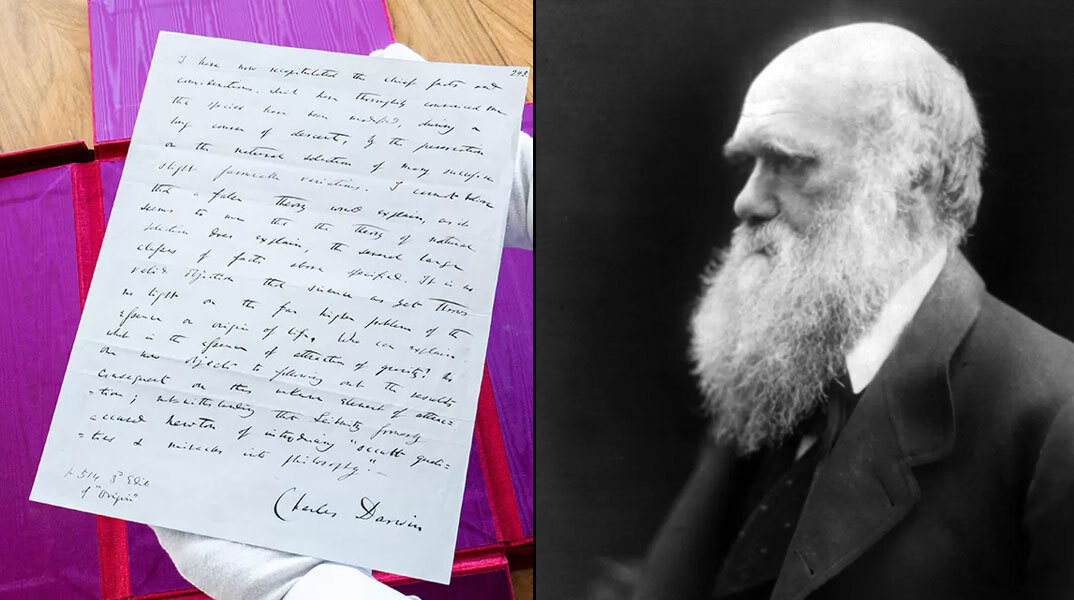 293
I have now recapitulated the chief facts and
considerations, which have thoroughly convinced me
that species have been modified, during a
long course of descent, by the preservation
or the natural selection of many successive
slight favourable variations. I cannot believe
that a false theory would explain, as it
seems to me that the theory of natural
selection does explain, the several large
classes of facts above specified. It is no
valid objection that science as yet throws
no light on the far higher problem of the
essence or origin of life. Who can explain
what is the essence of attraction of gravity? No
one now objects to following out the results
consequent on this unknown element of attrac-
-tion; notwithstanding that Leibnitz formerly
accused Newton of introducing "occult quali-
-ties & miracles into philosophy."—
p. 514 3d Edit
of "Origin"
Charles Darwin